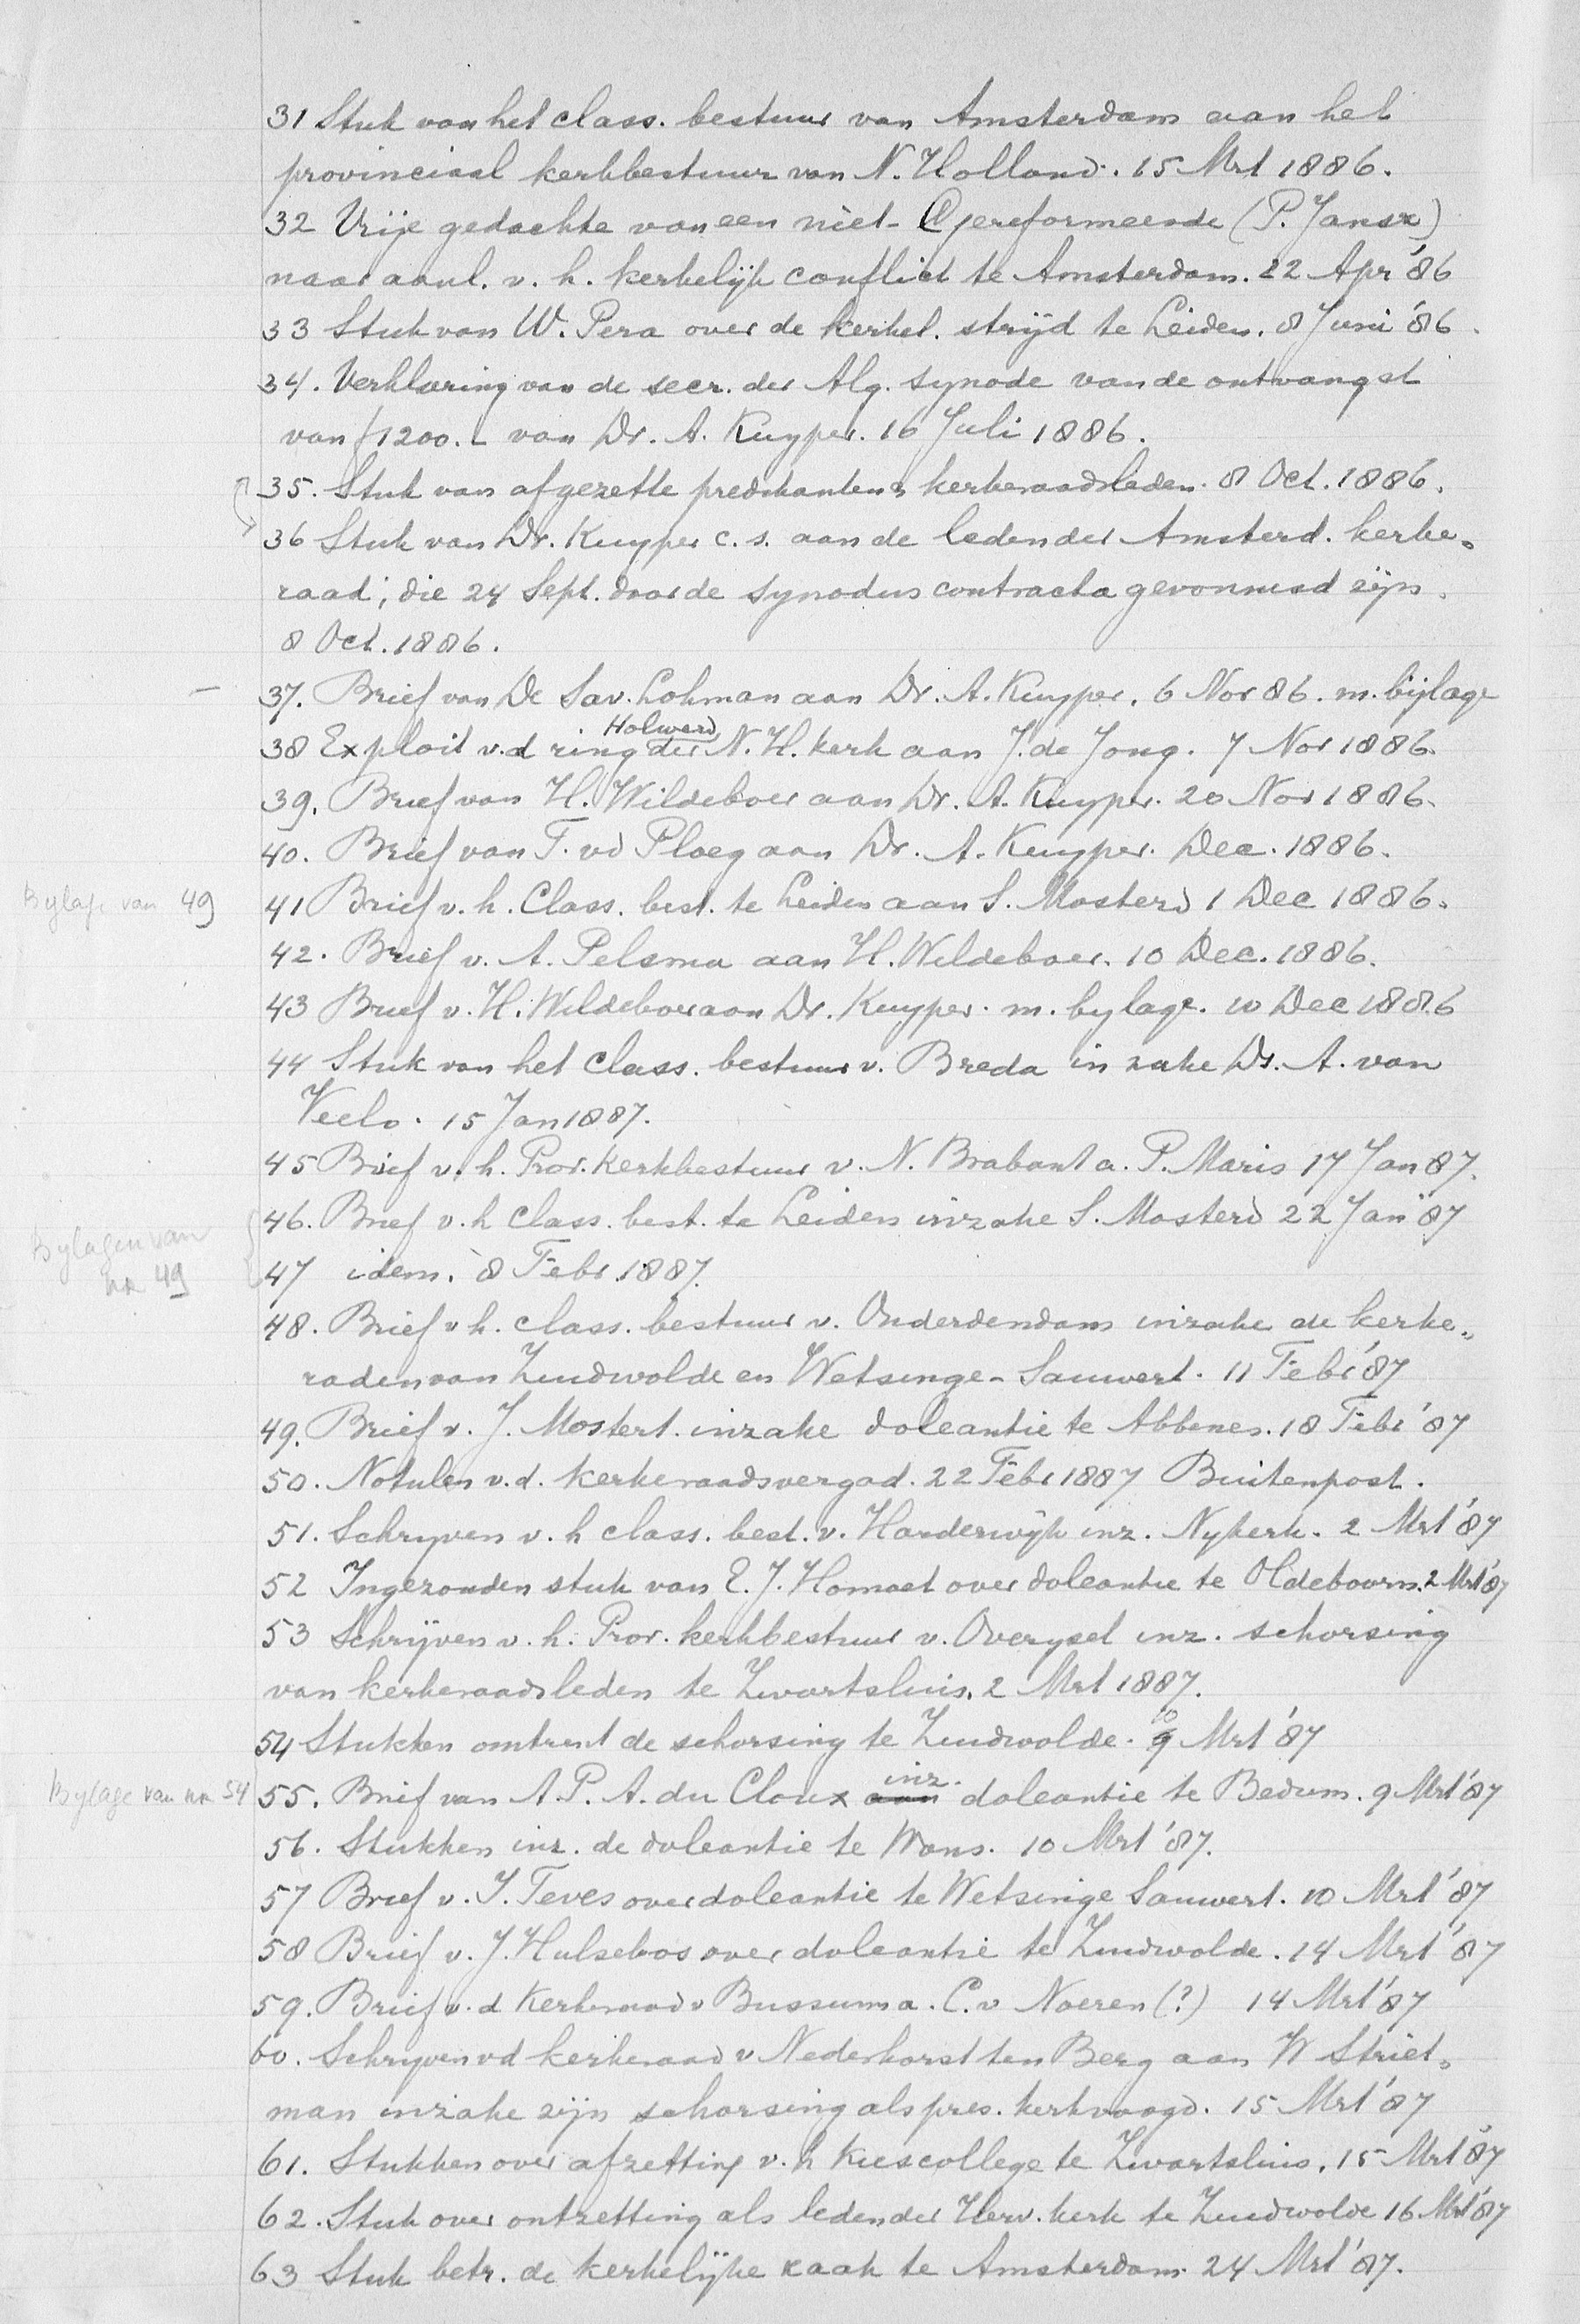 31 Stuk van het class. bestuur van Amsterdam aan het
provinciaal kerkbestuur van N. Holland. 15 Mrt 1886.
32 Vrije gedachte van een niet-Gereformeerde (P. Jansz)
naar aanl. v. h. kerkelijk conflict te Amsterdam. 22 Apr '86
33 Stuk van W. Pera over de kerkel. strijd te Leiden. 8 Juni '86.
34. Verklaring van de secr. der Alg. synode van de ontvangst
van f 1200.- van Dr. A. Kuyper. 16 Juli 1886.
35. Stuk van afgezette predikanten & kerkeraadsleden. 8 Oct. 1886.
36 Stuk van Dr. Kuyper c.s. aan de leden der Amsterd. kerke-
raad, die 24 Sept. door de synodus contracta gevonnisd zijn.
8 Oct. 1886.
37. Brief van De Sav. Lohman aan Dr. A. Kuyper. 6 Nov 86. m. bijlage
Holwerd
38 Exploit v.d ring der N. H. kerk aan J. de Jong. 7 Nov 1886.
39. Brief van H. Wildeboer aan Dr. A. Kuyper. 20 Nov 1886.
40. Brief van T. vd Ploeg aan Dr. A. Kuyper. Dec. 1886.
Bylage van 49
41 Brief v. h. Class. best. te Leiden aan S. Mosterd 1 Dec 1886.
42. Brief v. A. Pelsma aan H. Wildeboer. 10 Dec. 1886.
43 Brief v. H. Wildeboer aan Dr. Kuyper. m. bylage. 10 Dec 1886
44 Stuk van het Class. bestuur v. Breda in zake Ds. A. van
Veelo. 15 Jan 1887.
45 Brief v. h. Prov. kerkbestuur v. N. Brabant a. P. Maris 17 Jan 87.
46. Brief v. h class. best. te Leiden inzake S. Mosterd 22 Jan '87
Bylagen van
no 49
47 idem. 8 Febr. 1887.
48. Brief v h. class. bestuur v. Onderdendam inzake de kerke-
raden van Zuidwolde en Wetsinge-Sauwert. 11 Febr '87
49. Brief v. J. Mostert. inzake doleantie te Abbenes. 18 Febr '87
50. Notulen v.d. kerkeraadsvergad. 22 Febr 1887 Buitenpost.
51. Schryven v. h class. best. v. Harderwijk inz. Nykerk. 2 Mrt '87
52 Ingezonden stuk van E. J. Homoet over doleantie te Oldeboorn. 2 Mrt '87
53 Schrijven v. h. Prov. kerkbestuur v. Overysel inz. schorsing
van kerkeraadsleden te Zwartsluis. 2 Mrt 1887.
10
54 Stukken omtrent de schorsing te Zuidwolde. 9 Mrt '87
inz.
Bylage van no 54
55. Brief van A. P. A. du Cloux aan doleantie te Bedum. 9 Mrt '87
56. Stukken inz. de doleantie te Wons. 10 Mrt '87.
57 Brief v. J. Teves over doleantie te Wetsinge Sauwert. 10 Mrt '87
58 Brief v. J. Hulsebos over doleantie te Zuidwolde. 14 Mrt '87
59. Brief v. d Kerkeraad v Bussum a. C. v Noeren (?) 14 Mrt '87
60. Schryven vd kerkeraad v Nederhorst ten Berg aan W Striet-
man inzake zijn schorsing als pres. kerkvoogd. 15 Mrt '87
61. Stukken over afzetting v. h kiescollege te Zwartsluis. 15 Mrt '87
62. Stuk over ontzetting als leden der Herv. kerk te Zuidwolde 16 Mrt '87
63 Stuk betr. de kerkelijke zaak te Amsterdam. 24 Mrt '87.